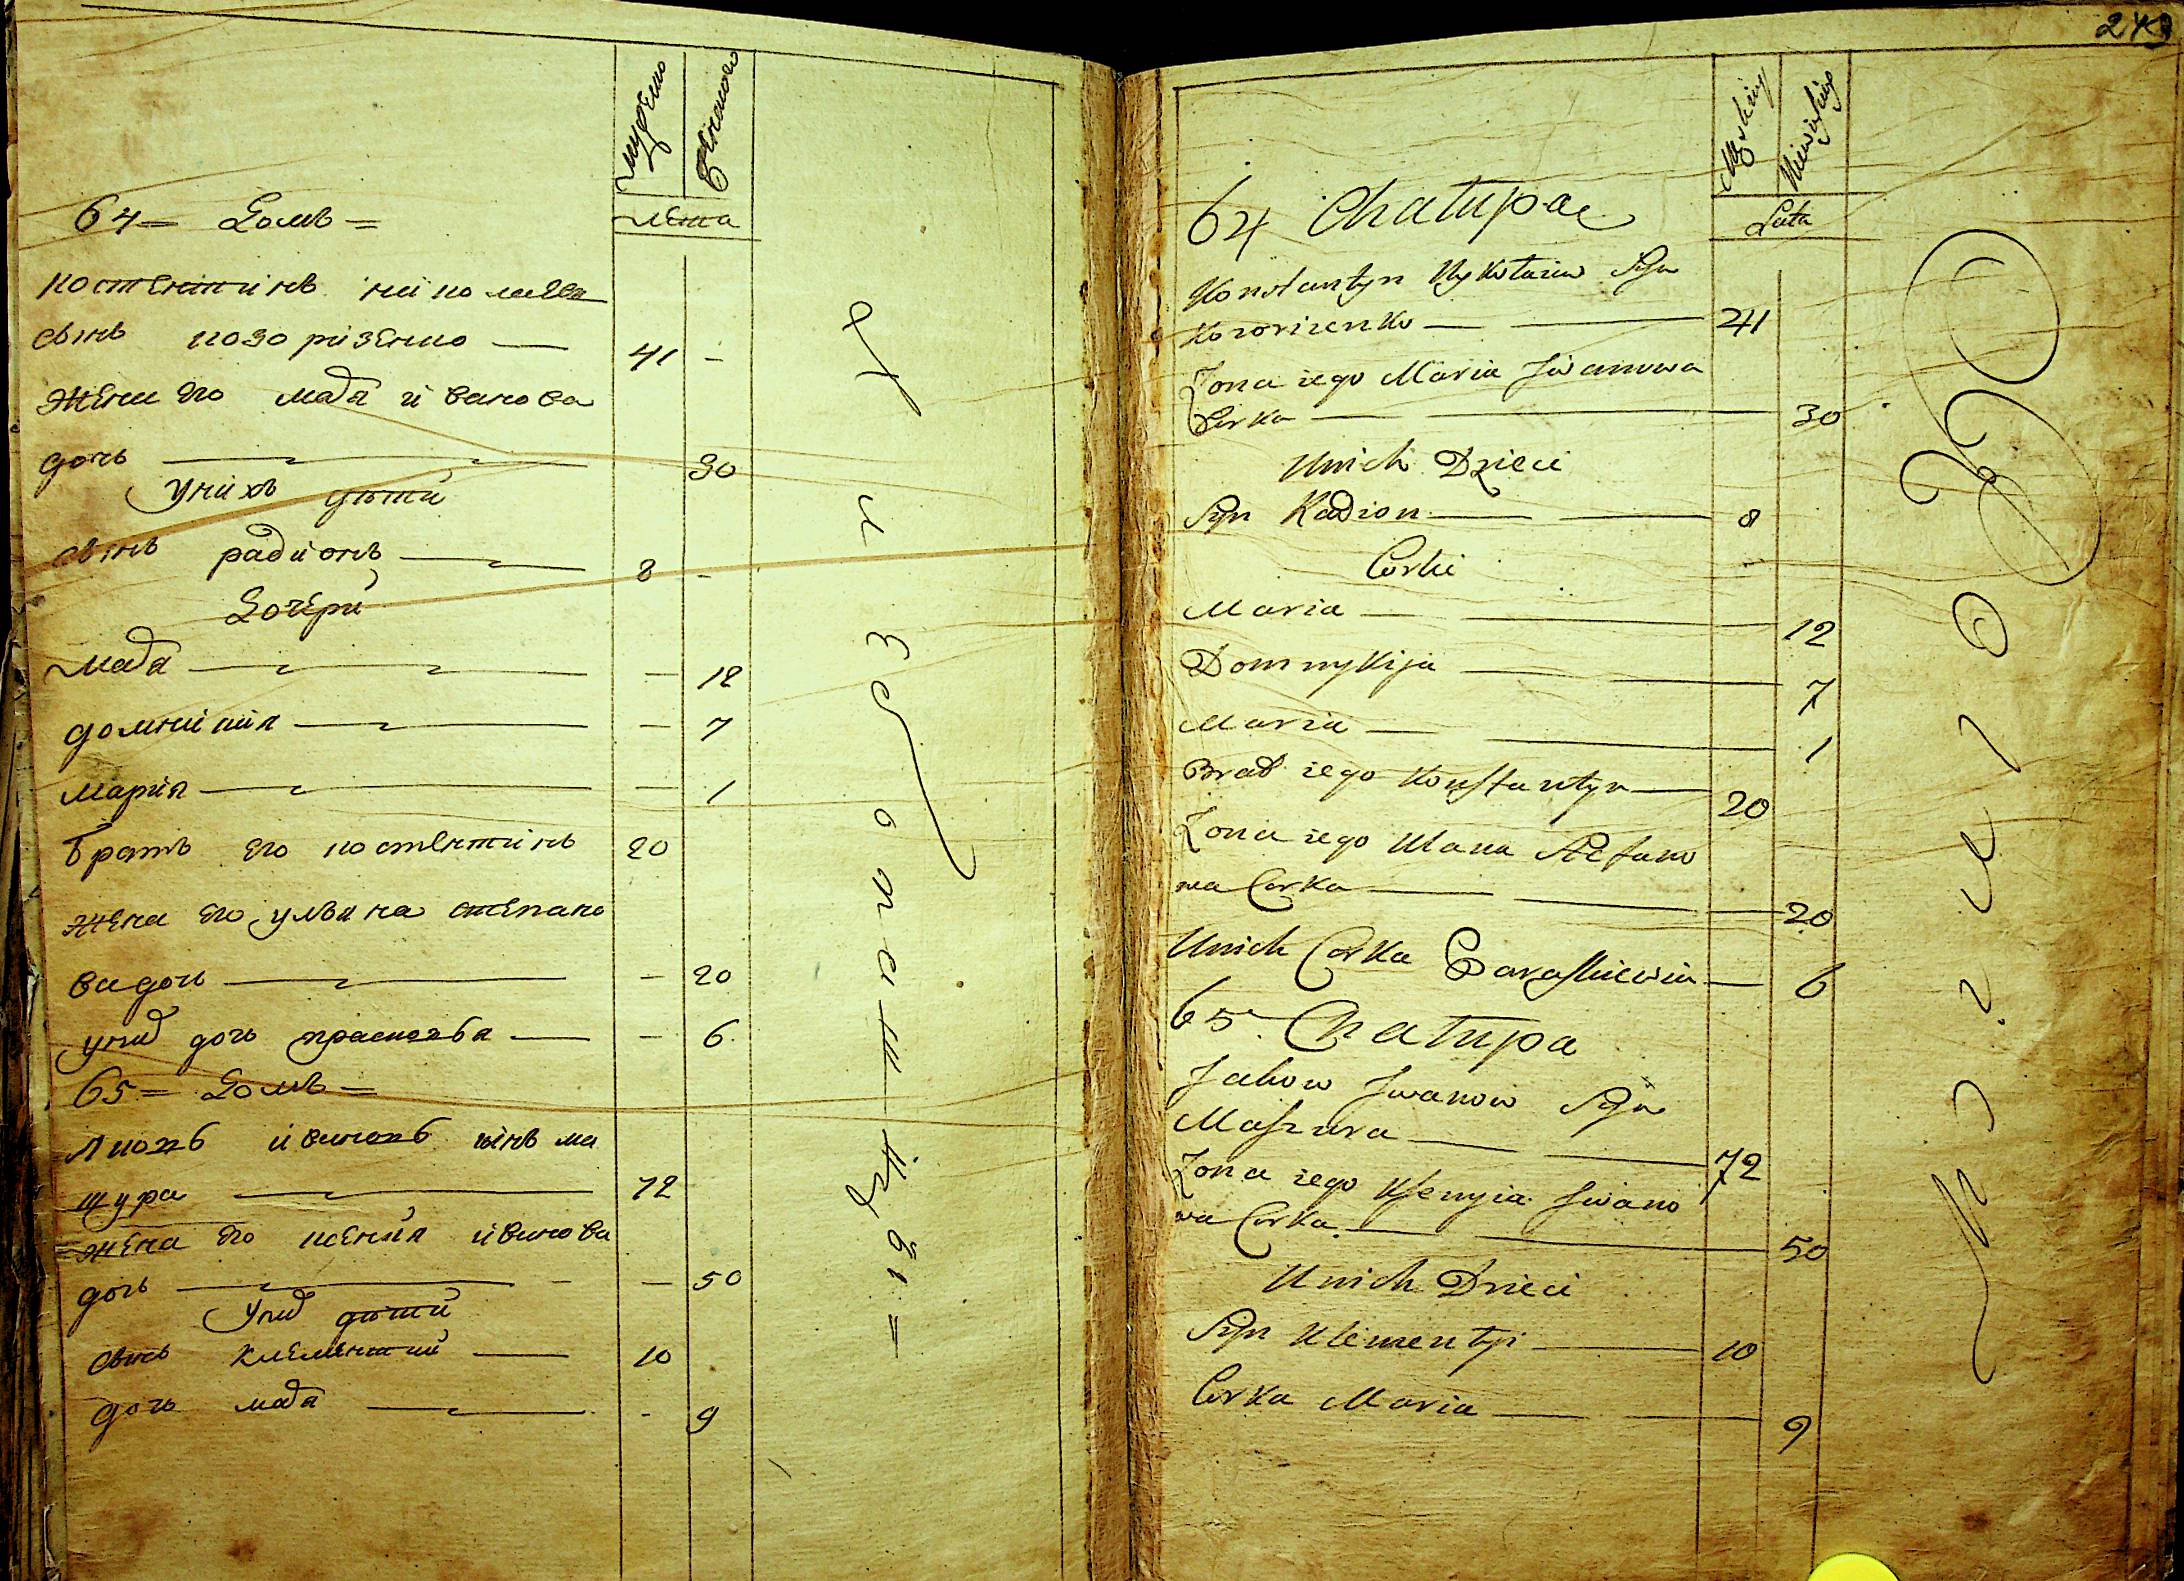 мужеско
женского
лета
64 = Домъ =
костентинъ николаевъ
сынъ козорізенко — 41 -
жена его мадя иванова
дочь — 30
У нихъ дѣти
сынъ радионъ — 8 -
Дочери
мадя — - 12
домникия — - 7
мария — - 1
братъ его костентинъ 20
жена его ульяна степано
ва дочь — - 20
у них дочь прасковья — - 6
65 = Домъ =
яковъ ивановъ сынъ ма
щура — 72
жена его ксения иванова
дочь — - 50
У них дѣти
сынъ клементий — 10
дочь мадя — - 9
243
Męskiey
Niewieskiey
Lata
64 Chałupa
Konstantyn Mykołaiew Syn
Kozorizenko — 41
Żona iego Maria Jwanowa
Corka — 30
U nich Dzieci
Syn Radion — 8
Corki
Maria — 12
Domnykija — 7
Maria — 1
Brat iego Konstantyn — 20
Żona iego Ulana Stefano
wa Corka — 20
U nich Corka Paraskiewia — 6
65 Chałupa
Jakow Jwanow Syn
Maszura — 72
Żona iego Ksenyia Jwano
wa Corka — 50
U nich Dzieci
Syn Klementyi — 10
Corka Maria — 9